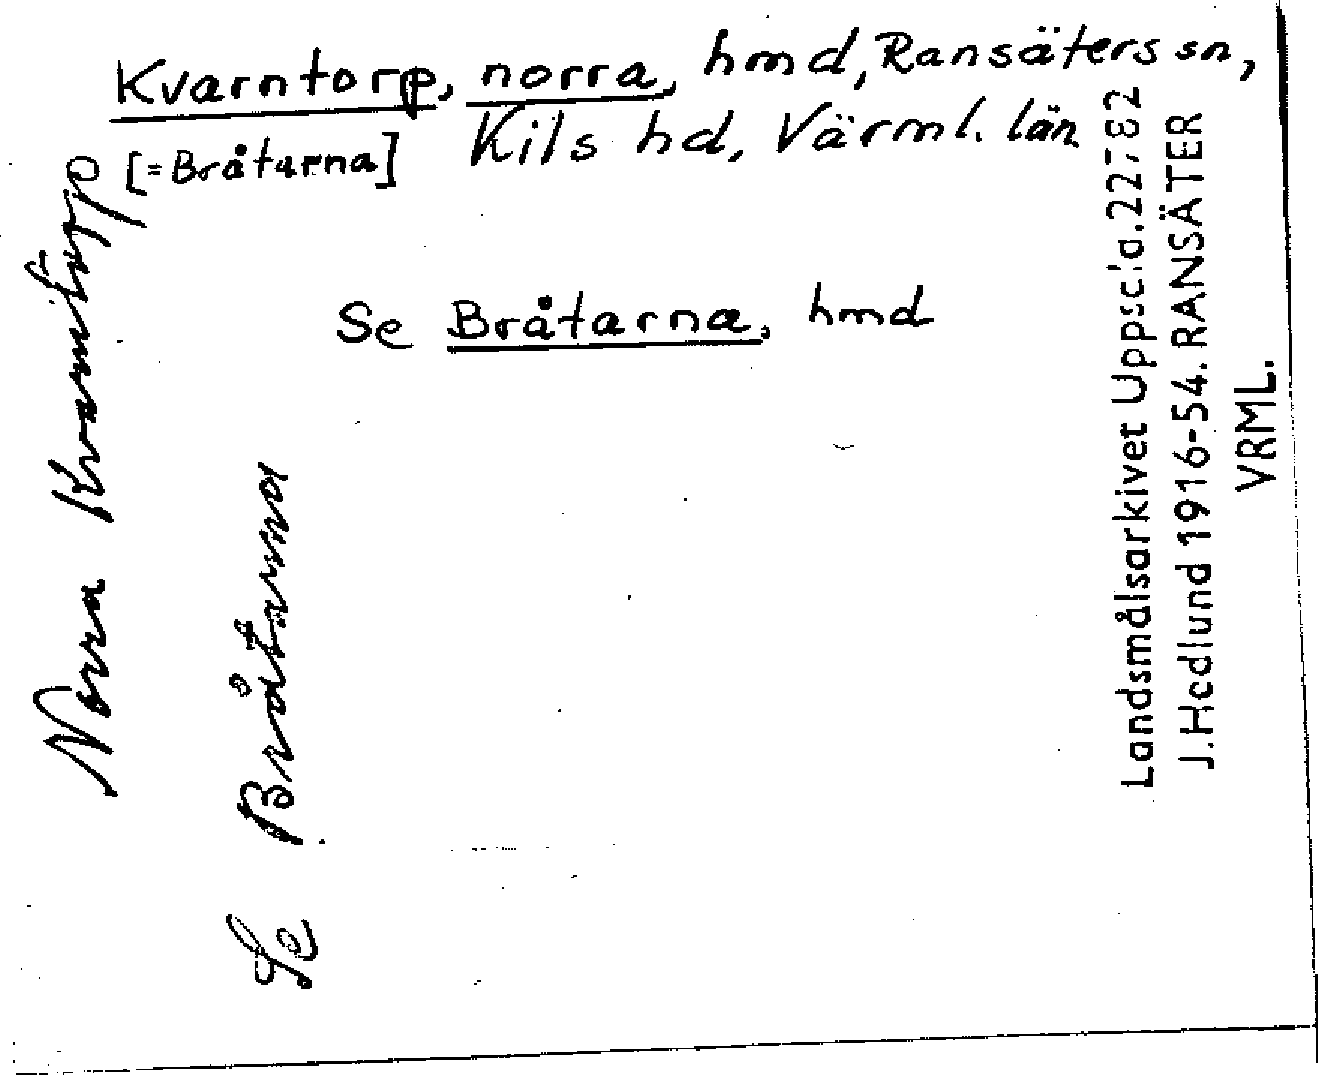 Kvarntorp, norra, hmd, Ransäters sn,
[=Bråtarna] Kils hd, Värml. län
Se Bråtarna, hmd
Norra Kvarntorp
Se Bråtarna
Landsmålsarkivet Uppsala. 22782
J. Hedlund 1916-54. RANSÄTER
VRML.